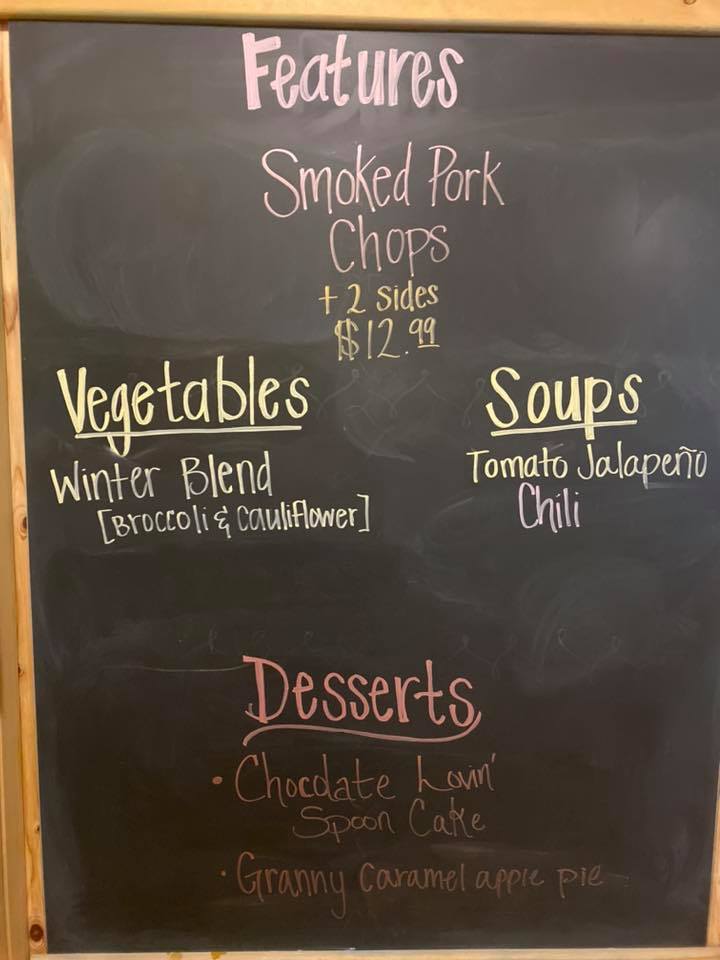 Features
Smoked Pork
Chops
+ 2 sides
$12.99
Vegetables
Winter Blend
[Broccoli & Cauliflower]
Soups
Tomato Jalapeño
Chili
Desserts
• Chocolate Lovin'
Spoon Cake
• Granny Caramel apple pie